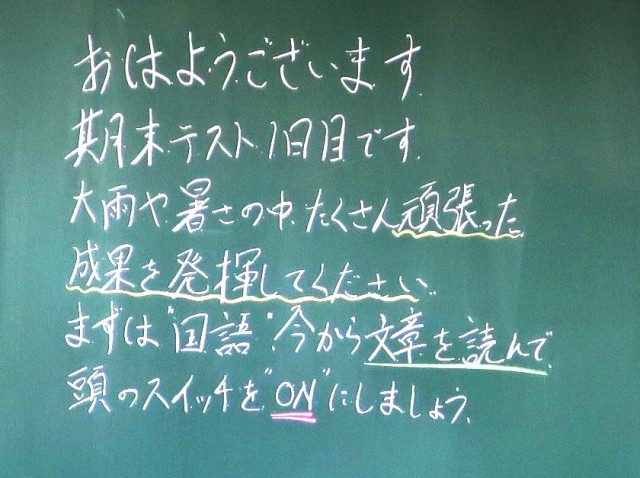 おはようございます。
期末テスト1日目です。
大雨や暑さの中、たくさん頑張った
成果を発揮してください。
まずは"国語"。今から文章を読んで
頭のスイッチを"ON"にしましょう。